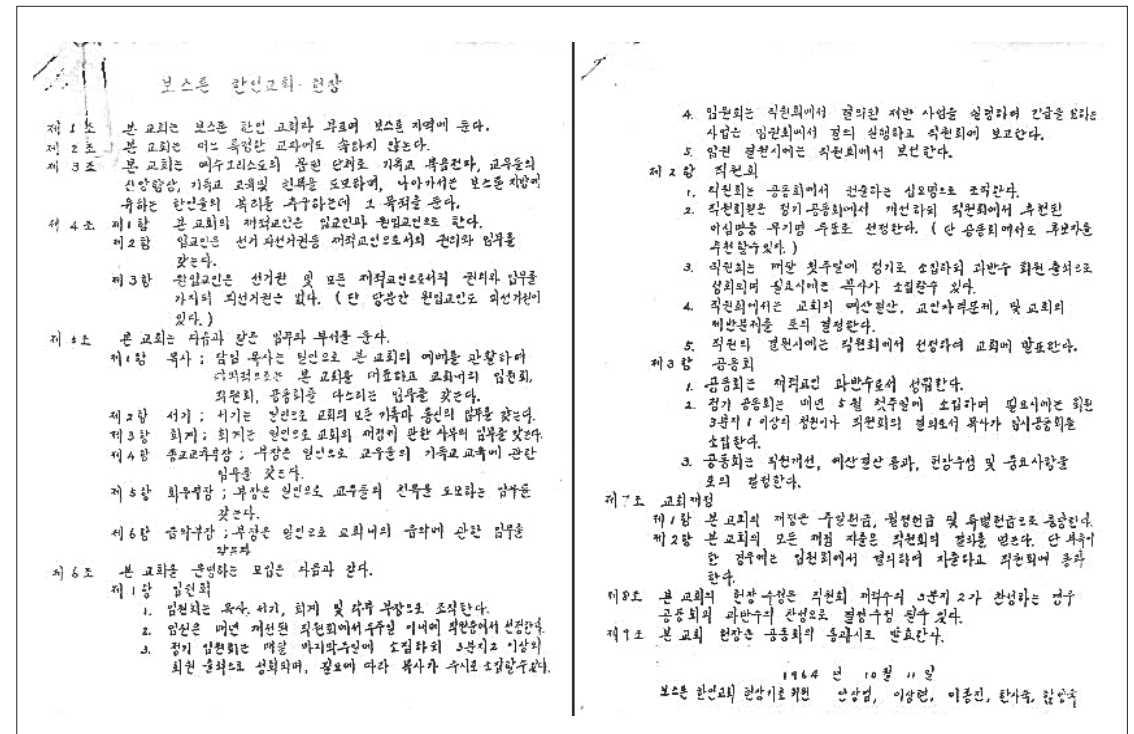 보스톤 한인교회 헌장
제 1 조 본 교회는 보스톤 한인 교회라 부르며 보스톤 지역에 둔다.
제 2 조 본 교회는 어느 특정한 교파에도 속하지 않는다.
제 3 조 본 교회는 예수그리스도의 몸된 단체로 기독교 복음전파, 교우들의
신앙향상, 기독교 교육및 친목을 도모하며, 나아가서는 보스톤 지방에
유하는 한인들의 복리를 추구하는데 그 목적을 둔다.
제 4 조 제1항 본 교회의 재적교인은 입교인과 원입교인으로 한다.
제2항 입교인은 선거 피선거권등 재적교인으로서의 권리와 임무를
갖는다.
제3항 원입교인은 선거권 및 모든 재적교인으로서의 권리와 임무를
가지되 피선거권은 없다. (단 당분간 원입교인도 피선거권이
있다.)
제 5 조 본 교회는 다음과 같은 임무와 부서를 둔다.
제1항 목사 ; 담임 목사는 일인으로 본 교회의 예배를 관할하며
본 교회를 대표하고 교회내의 임원회,
직원회, 공동회를 다스리는 임무를 갖는다.
제2항 서기 ; 서기는 일인으로 교회의 모든 기록과 통신의 임무를 갖는다.
제3항 회계 ; 회계는 일인으로 교회의 재정에 관한 사무의 임무를 갖는다.
제4항 종교교육부장 ; 부장은 일인으로 교우들의 기독교 교육에 관한
임무를 갖는다.
제5항 회우부장 ; 부장은 일인으로 교우들의 친목을 도모하는 임무를
갖는다.
제6항 음악부장 ; 부장은 일인으로 교회내의 음악에 관한 임무를
갖는다
제 6 조 본 교회를 운영하는 모임은 다음과 같다.
제1항 임원회
1. 임원회는 목사, 서기, 회계 및 각부 부장으로 조직한다.
2. 임원은 매년 개선된 직원회에서 주일 이내에 직원중에서 선정한다.
3. 정기 임원회는 매달 마지막주일에 소집하되 3분지2 이상의
회원 출석으로 성회되며, 필요에 따라 목사가 수시로 소집할수있다.
4. 임원회는 직원회에서 결의된 제반 사업을 실행하며 긴급을 요하는
사업은 임원회에서 결의 실행하고 직원회에 보고한다.
5. 임원 결원시에는 직원회에서 보선한다.
제2항 직원회
1. 직원회는 공동회에서 선출하는 십오명으로 조직한다.
2. 직원회원은 정기 공동회에서 개선하되 직원회에서 추천된
이십명중 무기명 투표로 선정한다. (단 공동회에서도 후보자를
추천할수있다.)
3. 직원회는 매달 첫주일에 정기로 소집하되 과반수 회원 출석으로
성회되며 필요시에는 목사가 소집할수 있다.
4. 직원회에서는 교회의 예산결산, 교인자격문제, 및 교회의
제반문제를 토의 결정한다.
5. 직원의 결원시에는 직원회에서 선정하여 교회에 발표한다.
제3항 공동회
1. 공동회는 재적교인 과반수로서 성립한다.
2. 정기 공동회는 매년 5월 첫주일에 소집하며 필요시에는 회원
3분지 1 이상의 청원이나 직원회의 결의로서 목사가 임시공동회를
소집한다.
3. 공동회는 직원개선, 예산결산 통과, 헌장수정 및 중요사항을
토의 결정한다.
제7조 교회재정
제1항 본 교회의 재정은 주일헌금, 월정헌금 및 특별헌금으로 충당한다.
제2항 본 교회의 모든 재정 지출은 직원회의 결의를 얻는다. 단 부득이
한 경우에는 임원회에서 결의하여 지출하고 직원회에 통과
한다.
제8조 본 교회의 헌장 수정은 직원회 재적수의 3분지 2가 찬성하는 경우
공동회의 과반수의 찬성으로 결정수정 될수 있다.
제9조 본 교회 헌장은 공동회의 통과시로 발효한다.
1964 년 10 월 11 일
보스톤 한인교회 헌장기초위원 안상엽, 이상현, 이종진, 한사욱,